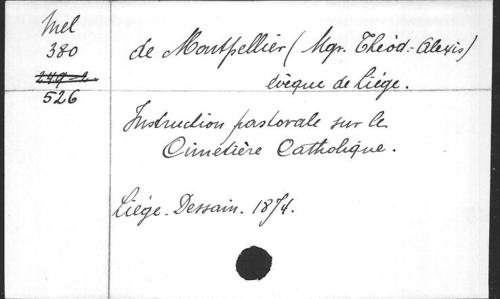 Mel
380
249-2
526
de Montpellier (Mgr. Théod.-Alexis)
évèque de Liége.
Instruction pastorale sur le
Cimetière Catholique.
Liége. Dessain. 1874.